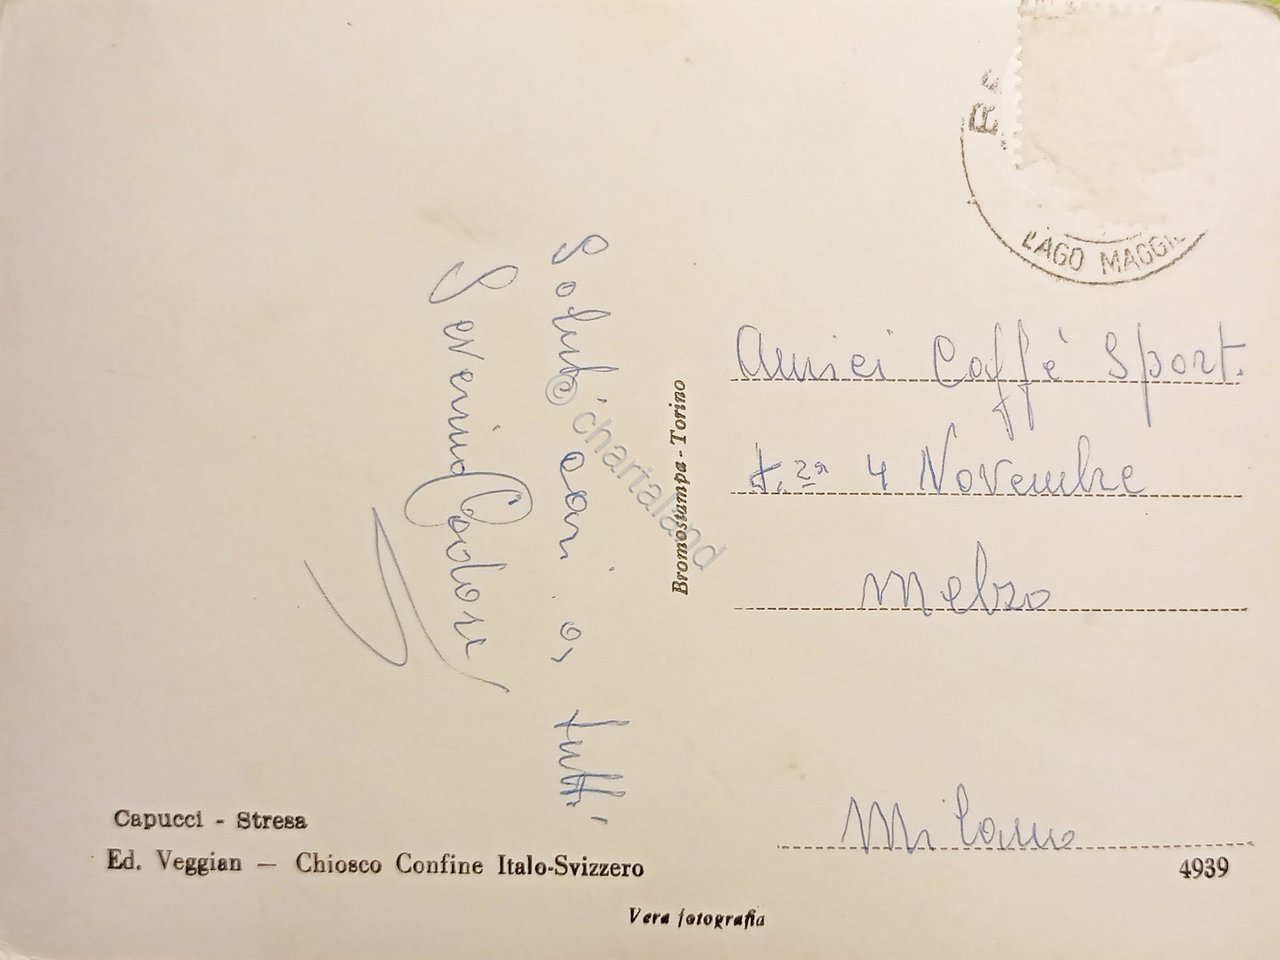 LAGO MAGGI
Saluti cari a tutti
Severino
Amici Caffè Sport.
4 Novembre
Melzo
Milano
Bromostampa - Torino
© chartaland
Capucci - Stresa
Ed. Veggian — Chiosco Confine Italo-Svizzero
4939
Vera fotografia